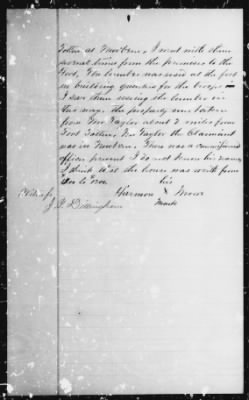 Totten at Newbern, I went with them
several times from the premises to the
Fort, The lumber was used at the fort
in building quarters for the troops -
I saw them using the lumber in
this way. The property was taken
from Mr Taylor about 2 miles from
Fort Totten, Mr Taylor the Claimant
was in Newbern. There was a commissioned
officer present I do not know his name
I think that the house was worth from
to
his
Witness Harmon X Moore
J. P. Dillingham mark